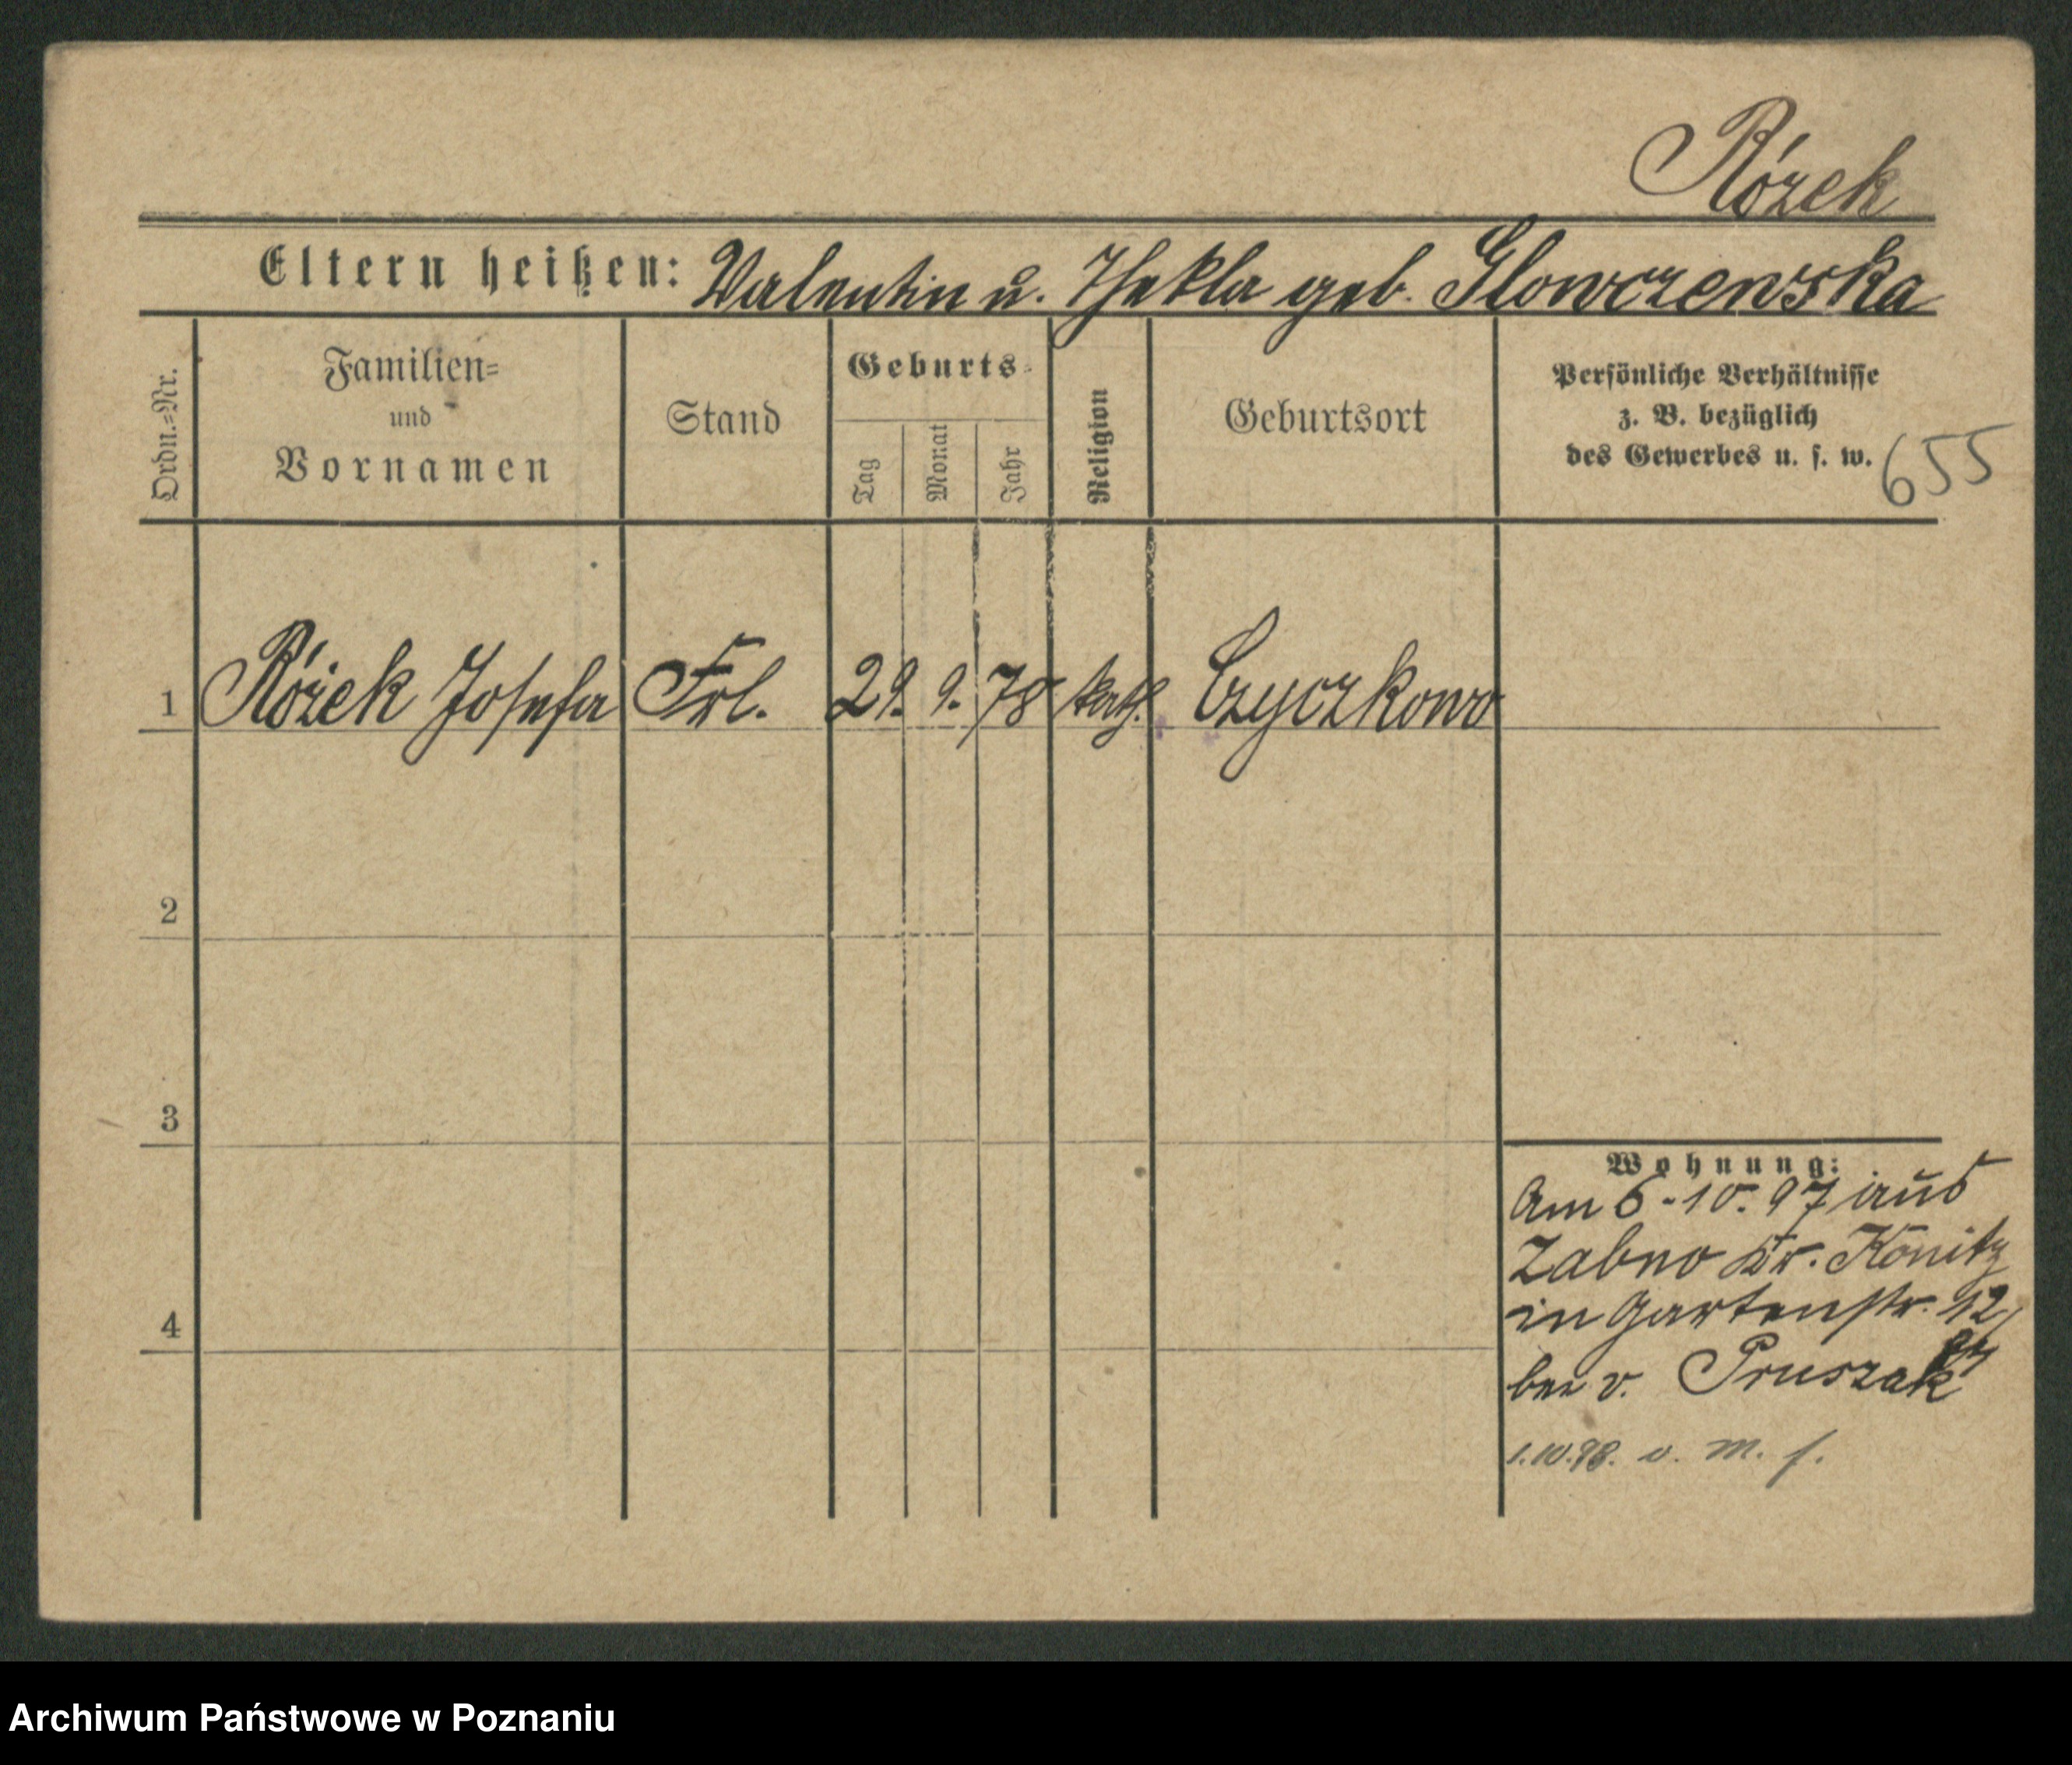 Rózek
Eltern heißen: Valentin u. Thekla geb. Glowczewska
Ordn.=Nr.
Familien=
und
Vornamen
Stand
Geburts=
Tag
Monat
Jahr
Religion
Geburtsort
Persönliche Verhältnisse
z. B. bezüglich
des Gewerbes u. s. w.
655
1 Rózek Josefa Frl. 29. 9. 78 kath. Czyczkowo
2
3
4
Wohnung:
Am 6.10.97 aus
Zabno Kr. Konitz
in Gartenstr. 12
bei v. Pruszak
1.10.98. v. M. f.
Archiwum Państwowe w Poznaniu